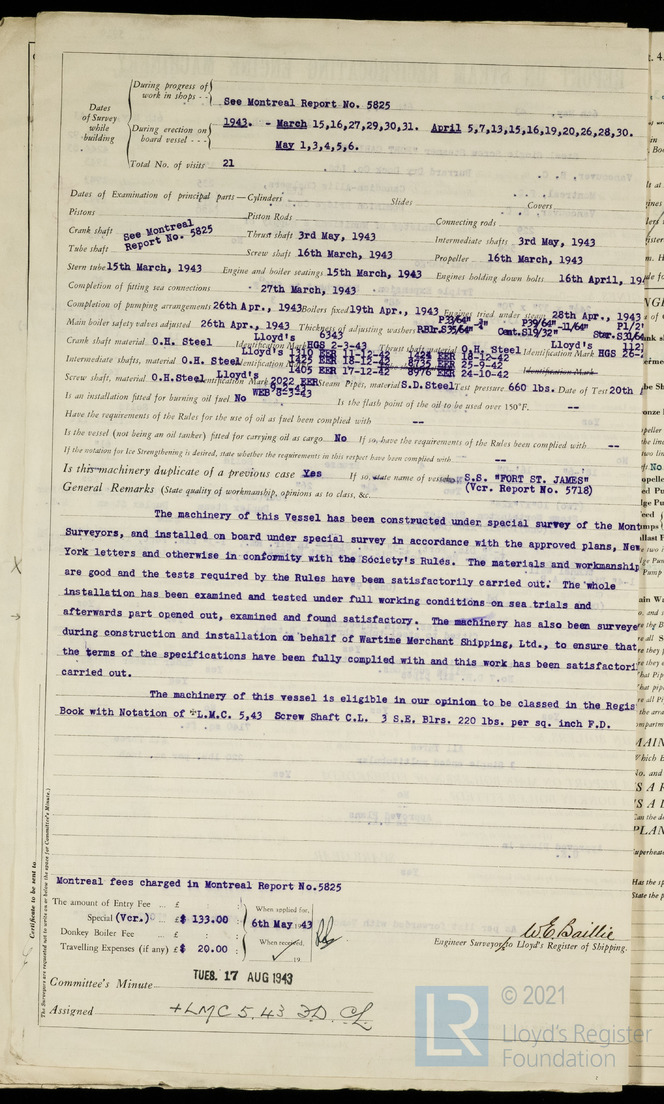 During progress of
work in shops - -
See Montreal Report No. 5825
Dates
of Survey
while
building
During erection on
board vessel - - -
1943. - March 15,16,27,29,30,31. April 5,7,13,15,16,19,20,26,28,30.
May 1,3,4,5,6.
Total No. of visits 21
Dates of Examination of principal parts—Cylinders Slides Covers
Pistons Piston Rods Connecting rods
Crank shaft See Montreal Report No. 5825 Thrust shaft 3rd May, 1943 Intermediate shafts 3rd May, 1943
Tube shaft Screw shaft 16th March, 1943 Propeller 16th March, 1943
Stern tube 15th March, 1943 Engine and boiler seatings 15th March, 1943 Engines holding down bolts 16th April, 19
Completion of fitting sea connections 27th March, 1943
Completion of pumping arrangements 26th Apr., 1943 Boilers fixed 19th Apr., 1943 Engines tried under steam 28th Apr., 1943
Main boiler safety valves adjusted 26th Apr., 1943 Thickness of adjusting washers
Crank shaft material O.H. Steel Identification Mark Lloyd's 6343 HGS 2-3-43 Thrust shaft material O.H. Steel Identification Mark Lloyd's
Intermediate shafts, material O.H. Steel Identification Marks Lloyd's 1310 EER 11-12-42 1424 EER 18-12-42
1425 EER 18-12-42 8735 EER 25-9-42
1405 EER 17-12-42 8976 EER 24-10-42
Screw shaft, material O.H.Steel Identification Mark Lloyd's 2022 EER 9-2-43 WEB 8-3-43 Steam Pipes, material S.D.Steel Test pressure 660 lbs. Date of Test 20th
Is an installation fitted for burning oil fuel No Is the flash point of the oil to be used over 150°F. --
Have the requirements of the Rules for the use of oil as fuel been complied with --
Is the vessel (not being an oil tanker) fitted for carrying oil as cargo No If so, have the requirements of the Rules been complied with --
If the notation for Ice Strengthening is desired, state whether the requirements in this respect have been complied with --
Is this machinery duplicate of a previous case Yes If so, state name of vessel S.S. "FORT ST. JAMES"
(Vcr. Report No. 5718)
General Remarks (State quality of workmanship, opinions as to class, &c.
The machinery of this Vessel has been constructed under special survey of the Mont
Surveyors, and installed on board under special survey in accordance with the approved plans, New
York letters and otherwise in conformity with the Society's Rules. The materials and workmanship
are good and the tests required by the Rules have been satisfactorily carried out. The whole
installation has been examined and tested under full working conditions on sea trials and
afterwards part opened out, examined and found satisfactory. The machinery has also been surveye
during construction and installation on behalf of Wartime Merchant Shipping, Ltd., to ensure that
the terms of the specifications have been fully complied with and this work has been satisfactori
carried out.
The machinery of this vessel is eligible in our opinion to be classed in the Regis
Book with Notation of +L.M.C. 5,43 Screw Shaft C.L. 3 S.E. Blrs. 220 lbs. per sq. inch F.D.
Certificate to be sent to
The Surveyors are requested not to write on or below the space for Committee's Minute.
Montreal fees charged in Montreal Report No.5825
The amount of Entry Fee ... £
Special (Vcr.) £$ 133.00
Donkey Boiler Fee ... £
Travelling Expenses (if any) £$ 20.00
When applied for,
6th May, 1943
When received,
19
W.E. Baillie
Engineer Surveyor to Lloyd's Register of Shipping.
Committee's Minute TUES. 17 AUG 1943
Assigned +LMC 5.43 FD. CL
LR
© 2021
Lloyd's Register
Foundation